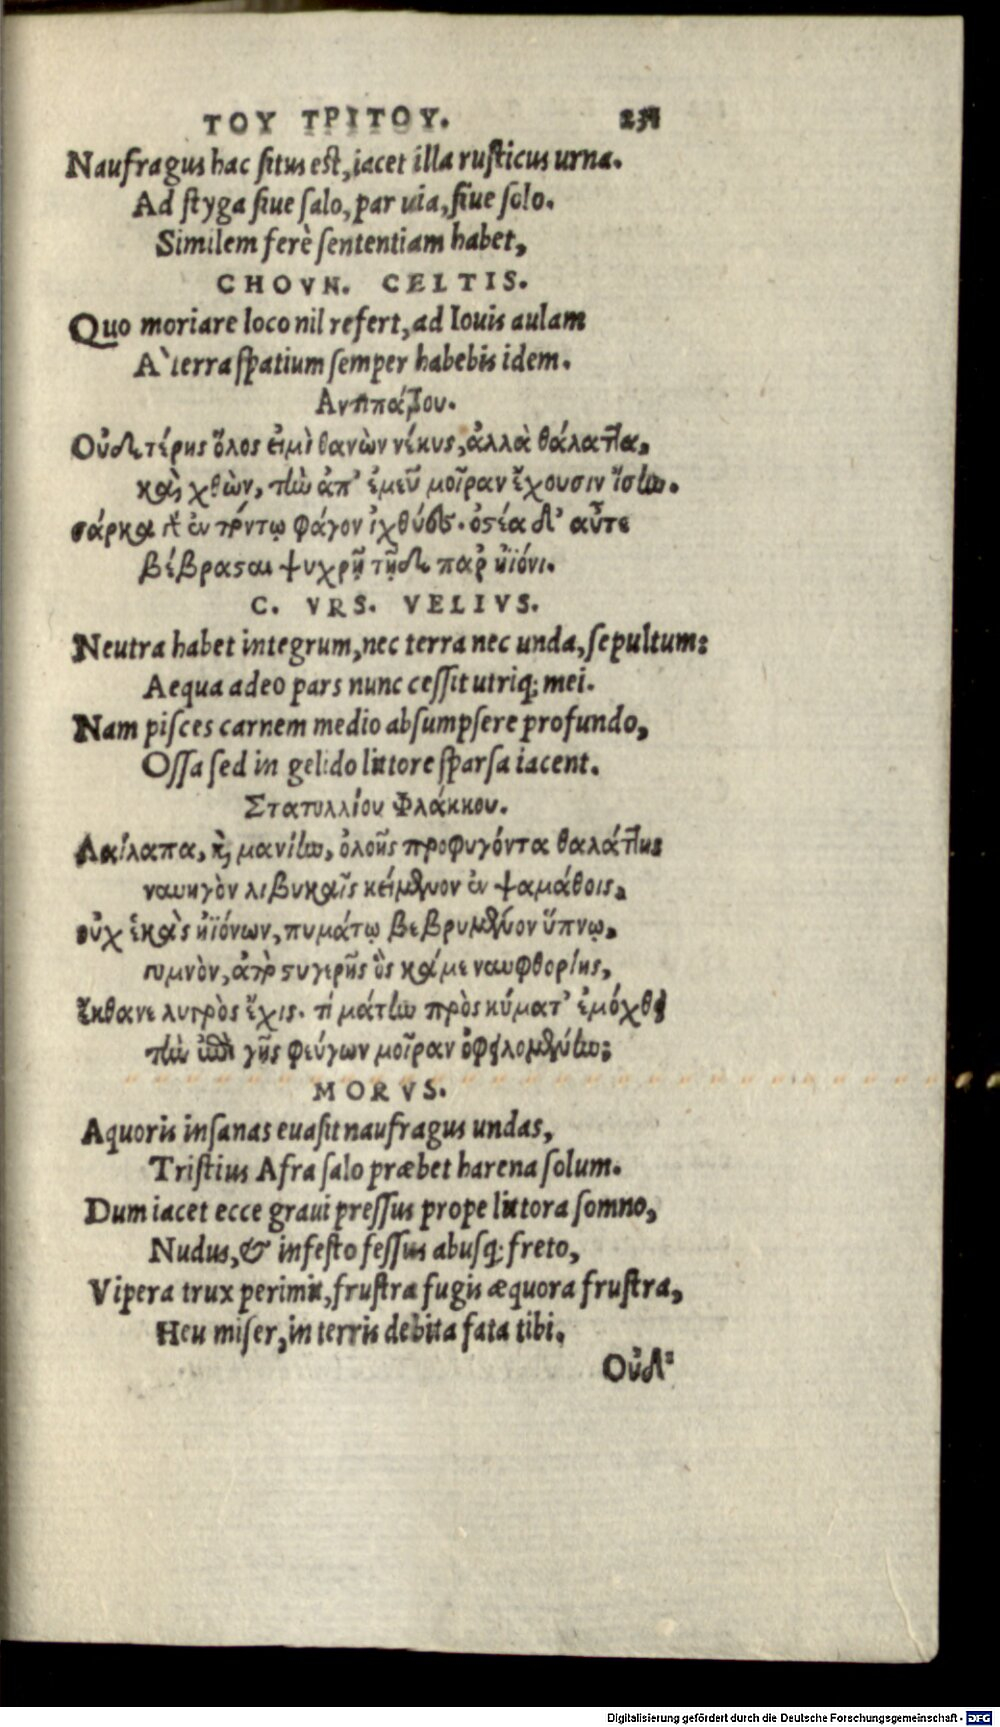 ΤΟΥ ΤΡΙΤΟΥ.
Naufragus hac situs est, iacet illa rusticus urna.
Ad styga siue salo, par uia, siue solo.
Similem ferè sententiam habet,
CHOVN. CELTIS.
Quo moriare loco nil refert, ad Iouis aulam
A' terra spatium semper habebis idem.
Αντιπάτρου.
Οὐδετέρης ὅλος εἰμὶ θανὼν νέκυς, ἀλλὰ θάλαττα,
καὶ χθὼν, τὴν ἀπ' ἐμεῦ μοῖραν ἔχουσιν ἴσην.
σάρκα γὰρ ἐν πόντῳ φάγον ἰχθύες. ὀστέα δ' αὖτε
βέβρασται ψυχρῇ τῇδε παρ' ἠϊόνι.
C. VRS. VELIVS.
Neutra habet integrum, nec terra nec unda, sepultum:
Aequa adeo pars nunc cessit utriq; mei.
Nam pisces carnem medio absumpsere profundo,
Ossa sed in gelido littore sparsa iacent.
Στατυλλίου Φλάκκου.
Λαίλαπα, καὶ μανίην, ὀλοῆς προφυγόντα θαλάττης
ναυηγὸν λιβυκαῖς κείμενον ἐν ψαμάθοις,
οὐχ ἑκὰς ἠϊόνων, πυμάτῳ βεβρυμένον ὕπνῳ,
γυμνὸν, ἀπὸ στυγερῆς ὃς κάμε ναυφθορίης,
ἔκθανε λυγρὸς ἔχις. τί μάτην πρὸς κύματ' ἐμόχθει
τὴν ἐπὶ γῆς φεύγων μοῖραν ὀφειλομένην;
MORVS.
Aquoris insanas euasit naufragus undas,
Tristius Afra salo præbet harena solum.
Dum iacet ecce graui pressus prope littora somno,
Nudus, & infesto fessus abusq; freto,
Vipera trux perimit, frustra fugis æquora frustra,
Heu miser, in terris debita fata tibi.
Οὐδ'
Digitalisierung gefördert durch die Deutsche Forschungsgemeinschaft - DFG